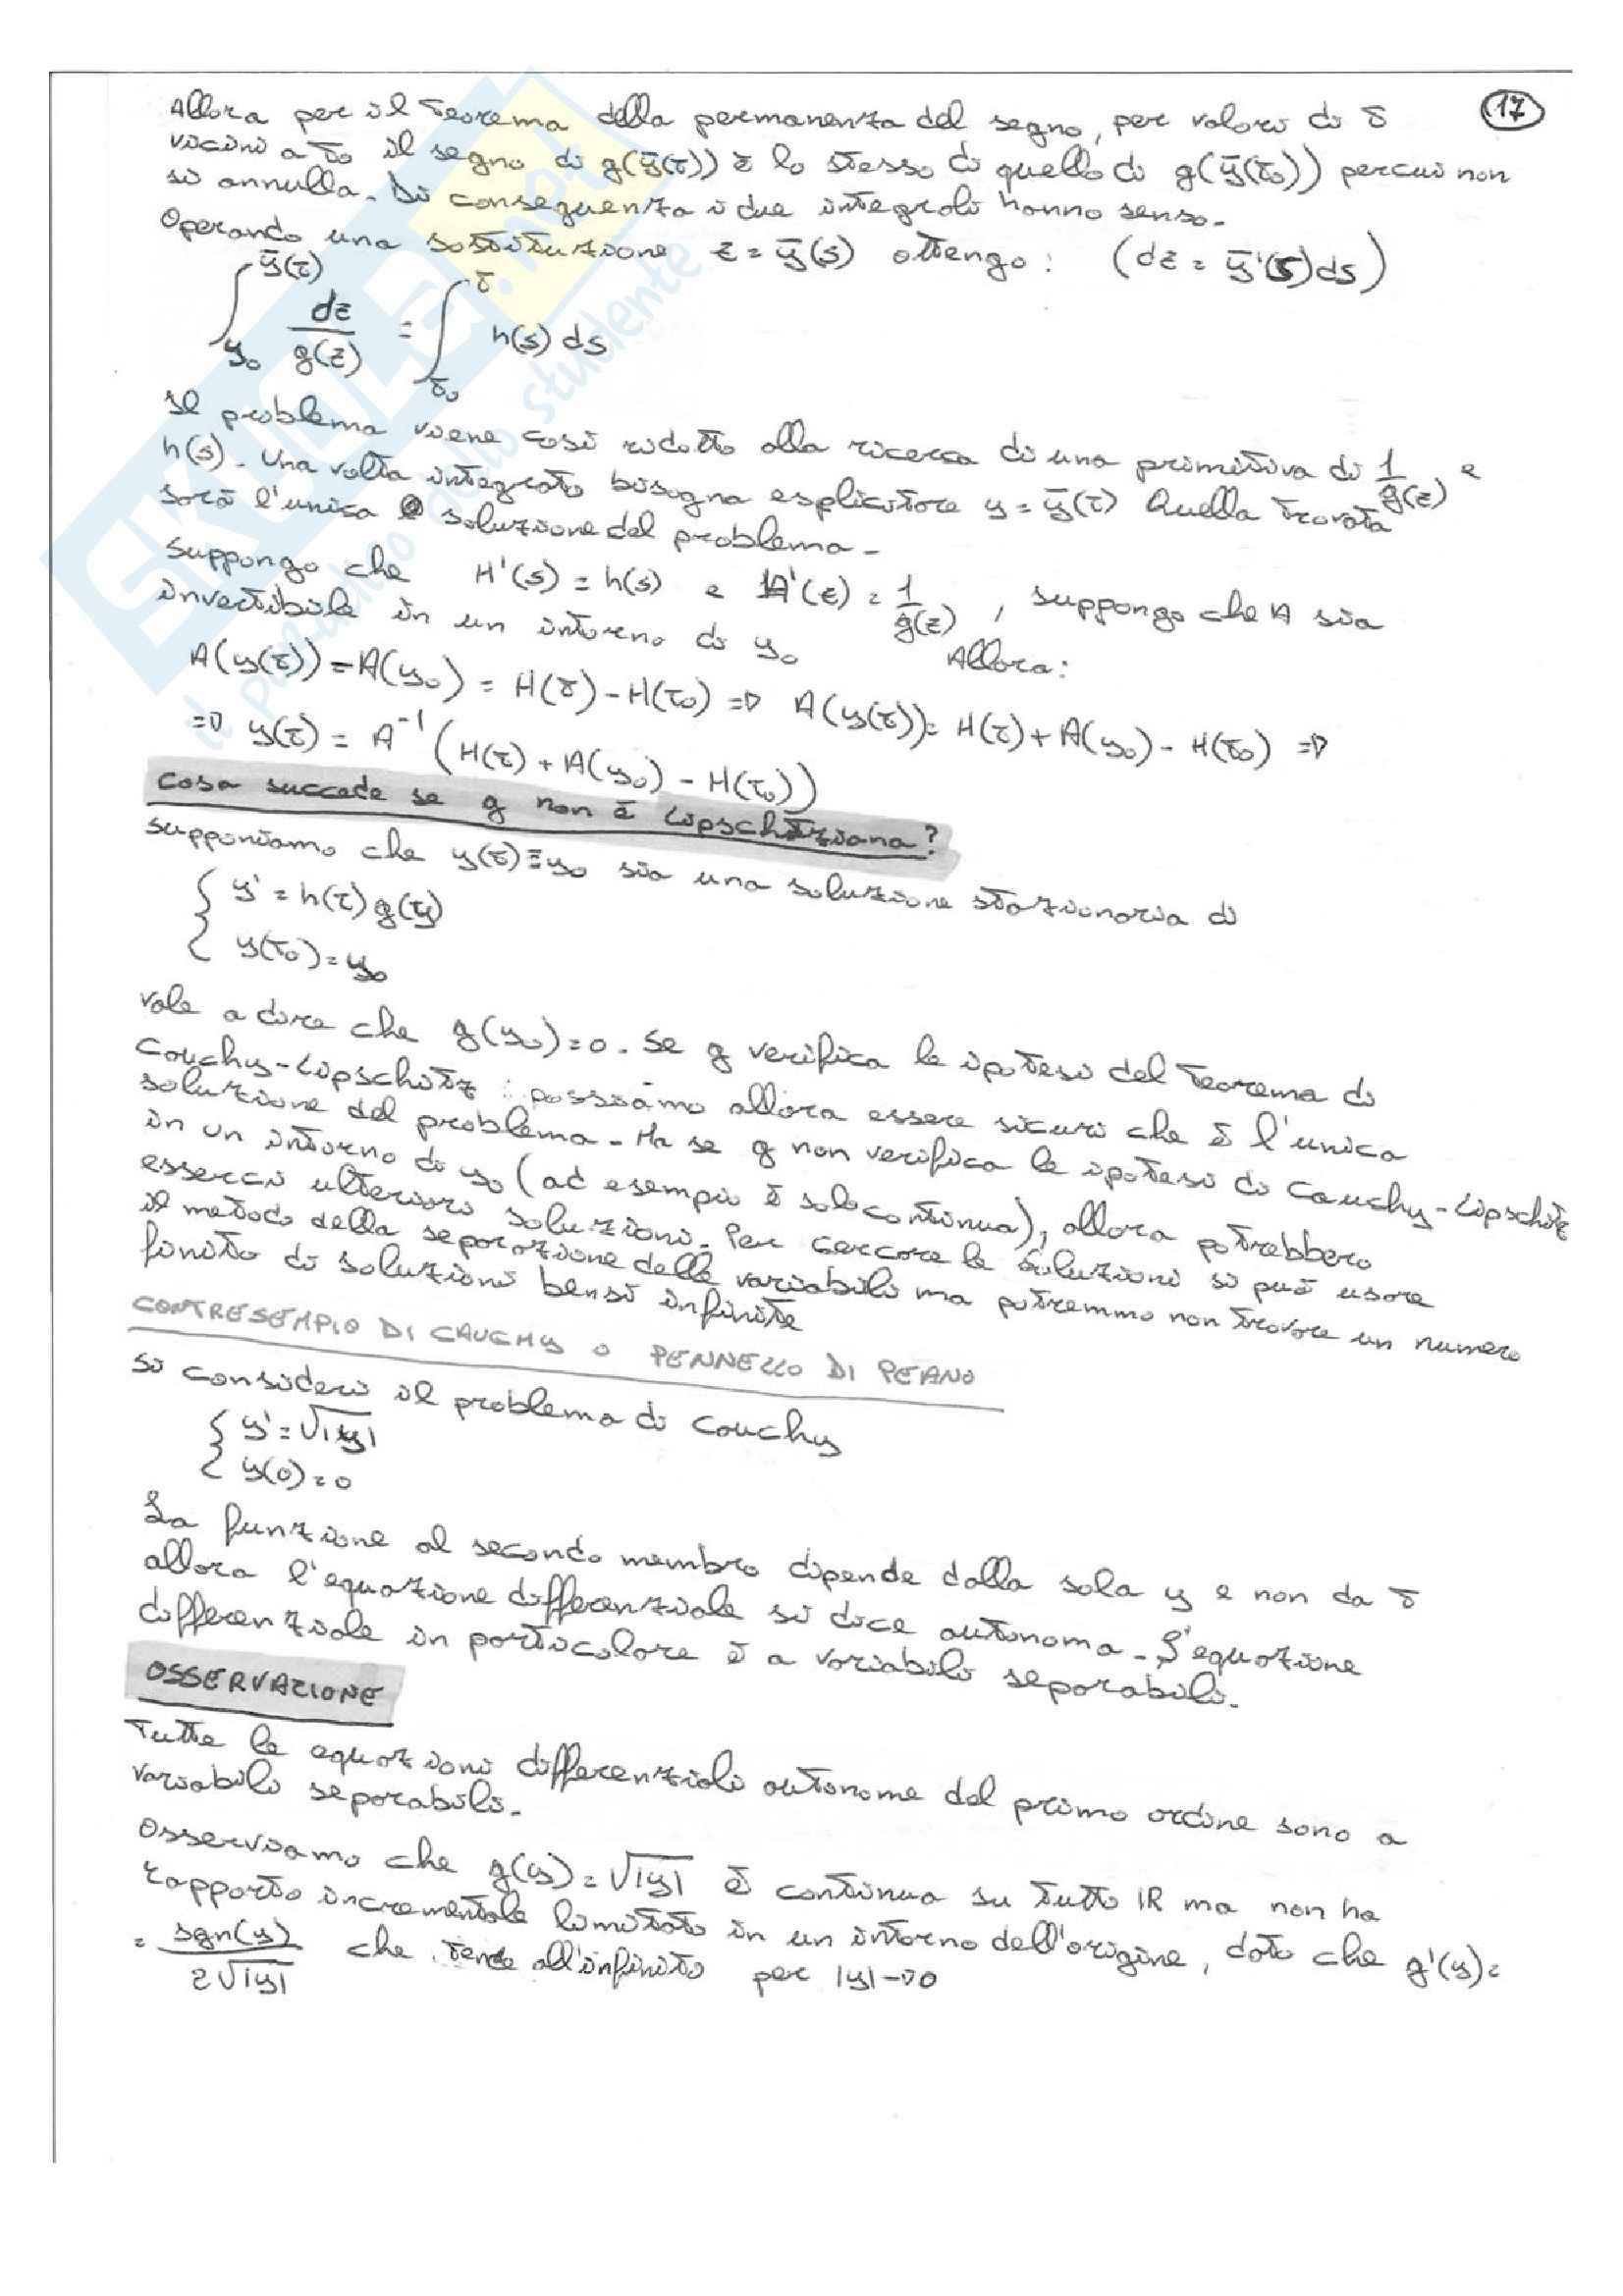 17
Allora per il teorema della permanenza del segno, per valori di t
vicini a t₀ il segno di g(ȳ(t)) è lo stesso di quello di g(ȳ(t₀)) percui non
si annulla. Di conseguenza i due integrali hanno senso.
Operando una sostituzione z = ȳ(s) ottengo: (dz = ȳ'(s)ds)
∫_{y₀}^{ȳ(t)} dz/g(z) = ∫_{t₀}^{t} h(s) ds
Il problema viene così ridotto alla ricerca di una primitiva di 1/g(z) e
h(s). Una volta integrato bisogna esplicitare y = ȳ(t) Quella trovata
sarà l'unica soluzione del problema.
Suppongo che H'(s) = h(s) e A'(z) = 1/g(z), suppongo che A sia
invertibile in un intorno di y₀ Allora:
A(y(t)) - A(y₀) = H(t) - H(t₀) => A(y(t)) = H(t) + A(y₀) - H(t₀) =>
=> y(t) = A⁻¹(H(t) + A(y₀) - H(t₀))
Cosa succede se g non è Lipschitziana?
Supponiamo che y(t) ≡ y₀ sia una soluzione stazionaria di
{ y' = h(t) g(y)
{ y(t₀) = y₀
Vale a dire che g(y₀) = 0. Se g verifica le ipotesi del teorema di
Cauchy-Lipschitz possiamo allora essere sicuri che è l'unica
soluzione del problema. Ma se g non verifica le ipotesi di Cauchy-Lipschitz
in un intorno di y₀ (ad esempio è solo continua), allora potrebbero
esserci ulteriori soluzioni. Per cercare le soluzioni si può usare
il metodo della separazione delle variabili ma potremmo non trovare un numero
finito di soluzioni bensì infinite
CONTRESEMPIO DI CAUCHY O PENNELLO DI PEANO
Si consideri il problema di Cauchy
{ y' = √|y|
{ y(0) = 0
La funzione al secondo membro dipende dalla sola y e non da t
allora l'equazione differenziale si dice autonoma. L'equazione
differenziale in particolare è a variabili separabili.
OSSERVAZIONE
Tutte le equazioni differenziali autonome del primo ordine sono a
variabili separabili.
Osserviamo che g(y) = √|y| è continua su tutto ℝ ma non ha
rapporto incrementale limitato in un intorno dell'origine, dato che g'(y) =
= sgn(y)/2√|y| che tende all'infinito per |y| → 0
SKUOLA.net
il paradiso dello studente